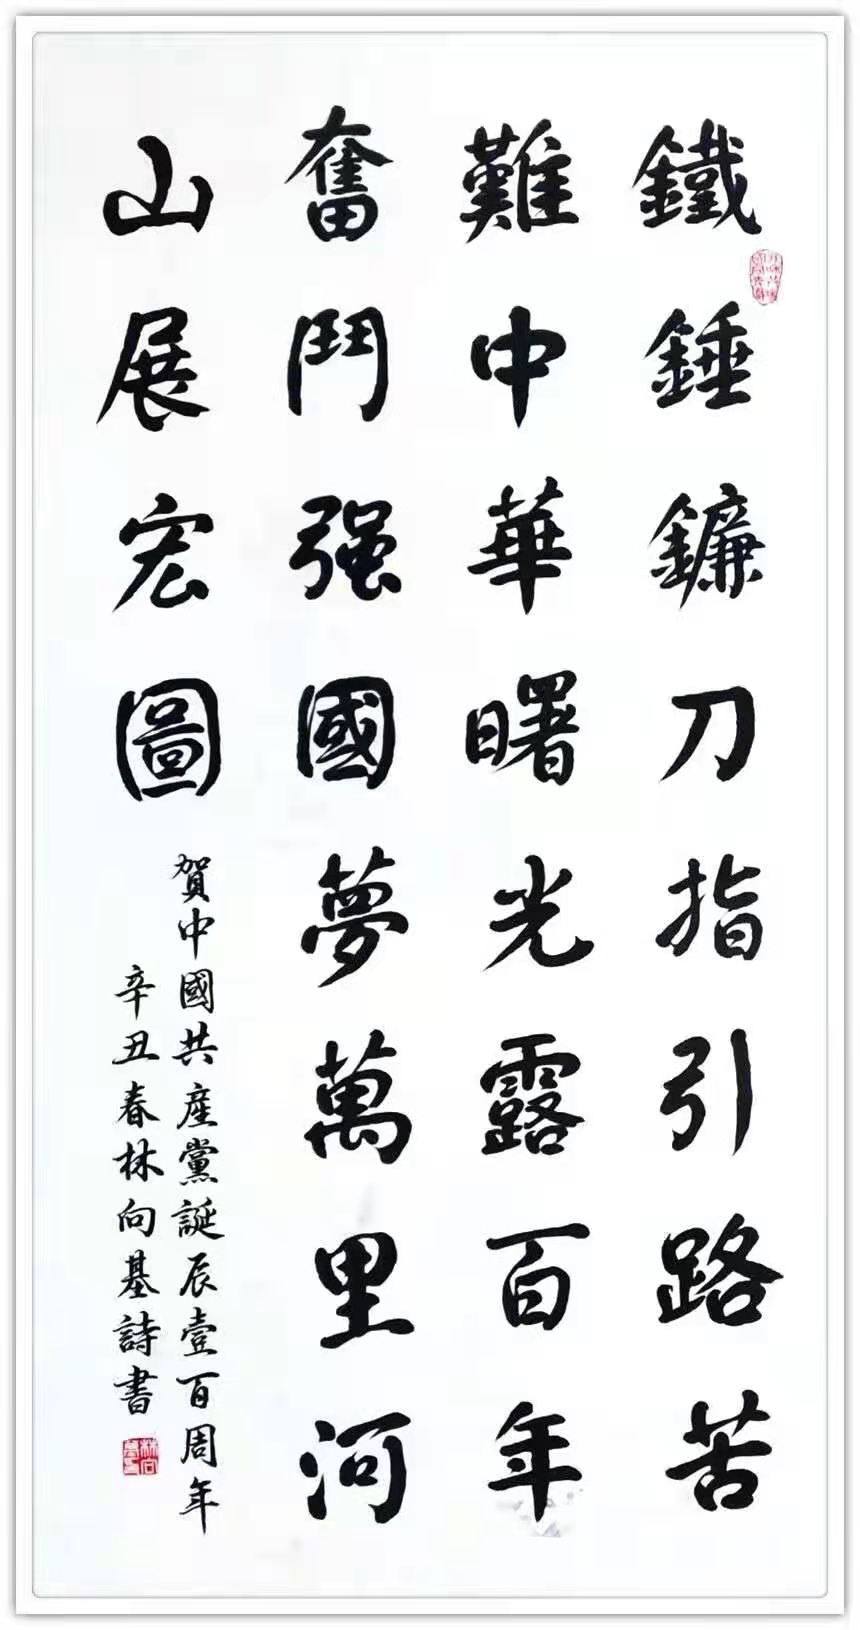 鐵錘鐮刀指引路苦
難中華曙光露百年
奮鬥强國夢萬里河
山展宏圖
賀中國共産黨誕辰壹百周年
辛丑春林向基詩書